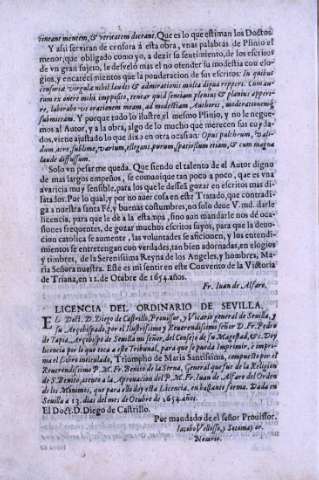 ventant mentem, & veritatem doceant. Que es lo que estiman los Doctos.
Y assi serviran de censura à esta obra, vnas palabras de Plinio el
menor, que obligado como yo, a dezir su sentimiento, de los escritos
de vn gran sujeto, le desselò mas el no ofender su modestia con elo-
gios, y encarecimientos que la ponderacion de sus escritos: In quibus
censoria virgula nihil laudis & admirationis multa digna repperi. Cum au-
tem
laborabo vt orationem meam, ad modestiam Authoris,
submittam. Y porque todo lo ilustre, el mesmo Plinio, y no le negue-
mos al Autor, y a la obra, algo de lo mucho que merecen sus cuyda-
dos, viene ajustado lo que dixo en otra ocasion: Opus pulchrum, vali-
dum acre, sublime, varium, elegans, purum, spatiosum etiam, & cum magna
laude diffusum.
Solo vn pesar me queda. Que siendo el talento de al Autor digno
de mas largos empeños, se comunique tan poco a poco, que es vna
avaricia muy sensible, para los que le dessea gozar en escritos mas di-
latados. Por lo qual, y por no aver cosa en este Tratado, que contradi-
ga a nuestra santa Fè, y buenas costumbres, no solo deve V. md. darle
licencia, para que le dè a la estampa, sino aun mandarle nos dè oca-
siones frequentes, de gozar muchos escritos suyos, para que la devo-
cion catolica se aumente, las voluntades se aficionen, y los entendi-
mientos se entretengan con verdades, tan bien adornadas, en elogios
y timbres, de la Serenissima Reyna de los Angeles, y hombres, Ma-
ria Señora nuestra. Este es mi sentir en este Convento de la Victoria
de Triana, en 11. de Otubre de 1654. años.
Fr. Iuan de Alfaro.
LICENCIA DEL ORDINARIO DE SEVILLA.
EL Doct. D. Diego de Castrillo, Provisor, y Vicario general de Sevilla, y
su Arçobispado, por el Ilustrissimo y Reverendissimo señor D. Fr. Pedro
de Tapia, Arçobispo de Sevilla mi señor, del Consejo de su Magestad, &c. Doy
licencia por lo que toca a este Tribunal, para que se pueda Imprimir, e impri-
ma el libro intitulado, Triumpho de Maria Santissima, compuesto por el
Reverendissimo P. M. Fr. Benito de la Serna, General que fue de la Religion
de S. Benito, atento a la Aprovacion del P. M. Fr. Iuan de Alfaro del Orden
de los Minimos, que para ello dèy a esta Licencia, en bastante forma. Dada en
Sevilla a 13. dias del mes de Otubre de 1654. años.
El Doct. D. Diego de Castrillo.
Por mandado de el señor Provisor.
Iacobo Vellosso, y Sotomayor.
Notario.